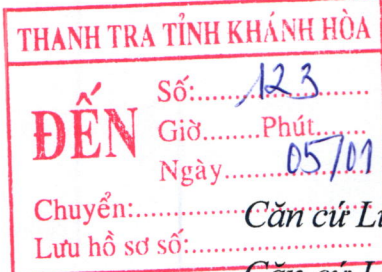 THANH TRA TỈNH KHÁNH HÒA
ĐẾN
Số:.....123.....
Giờ........Phút.......
Ngày........05/01
Chuyển:..............
Lưu hồ sơ số:......................
Căn cứ
Căn cứ